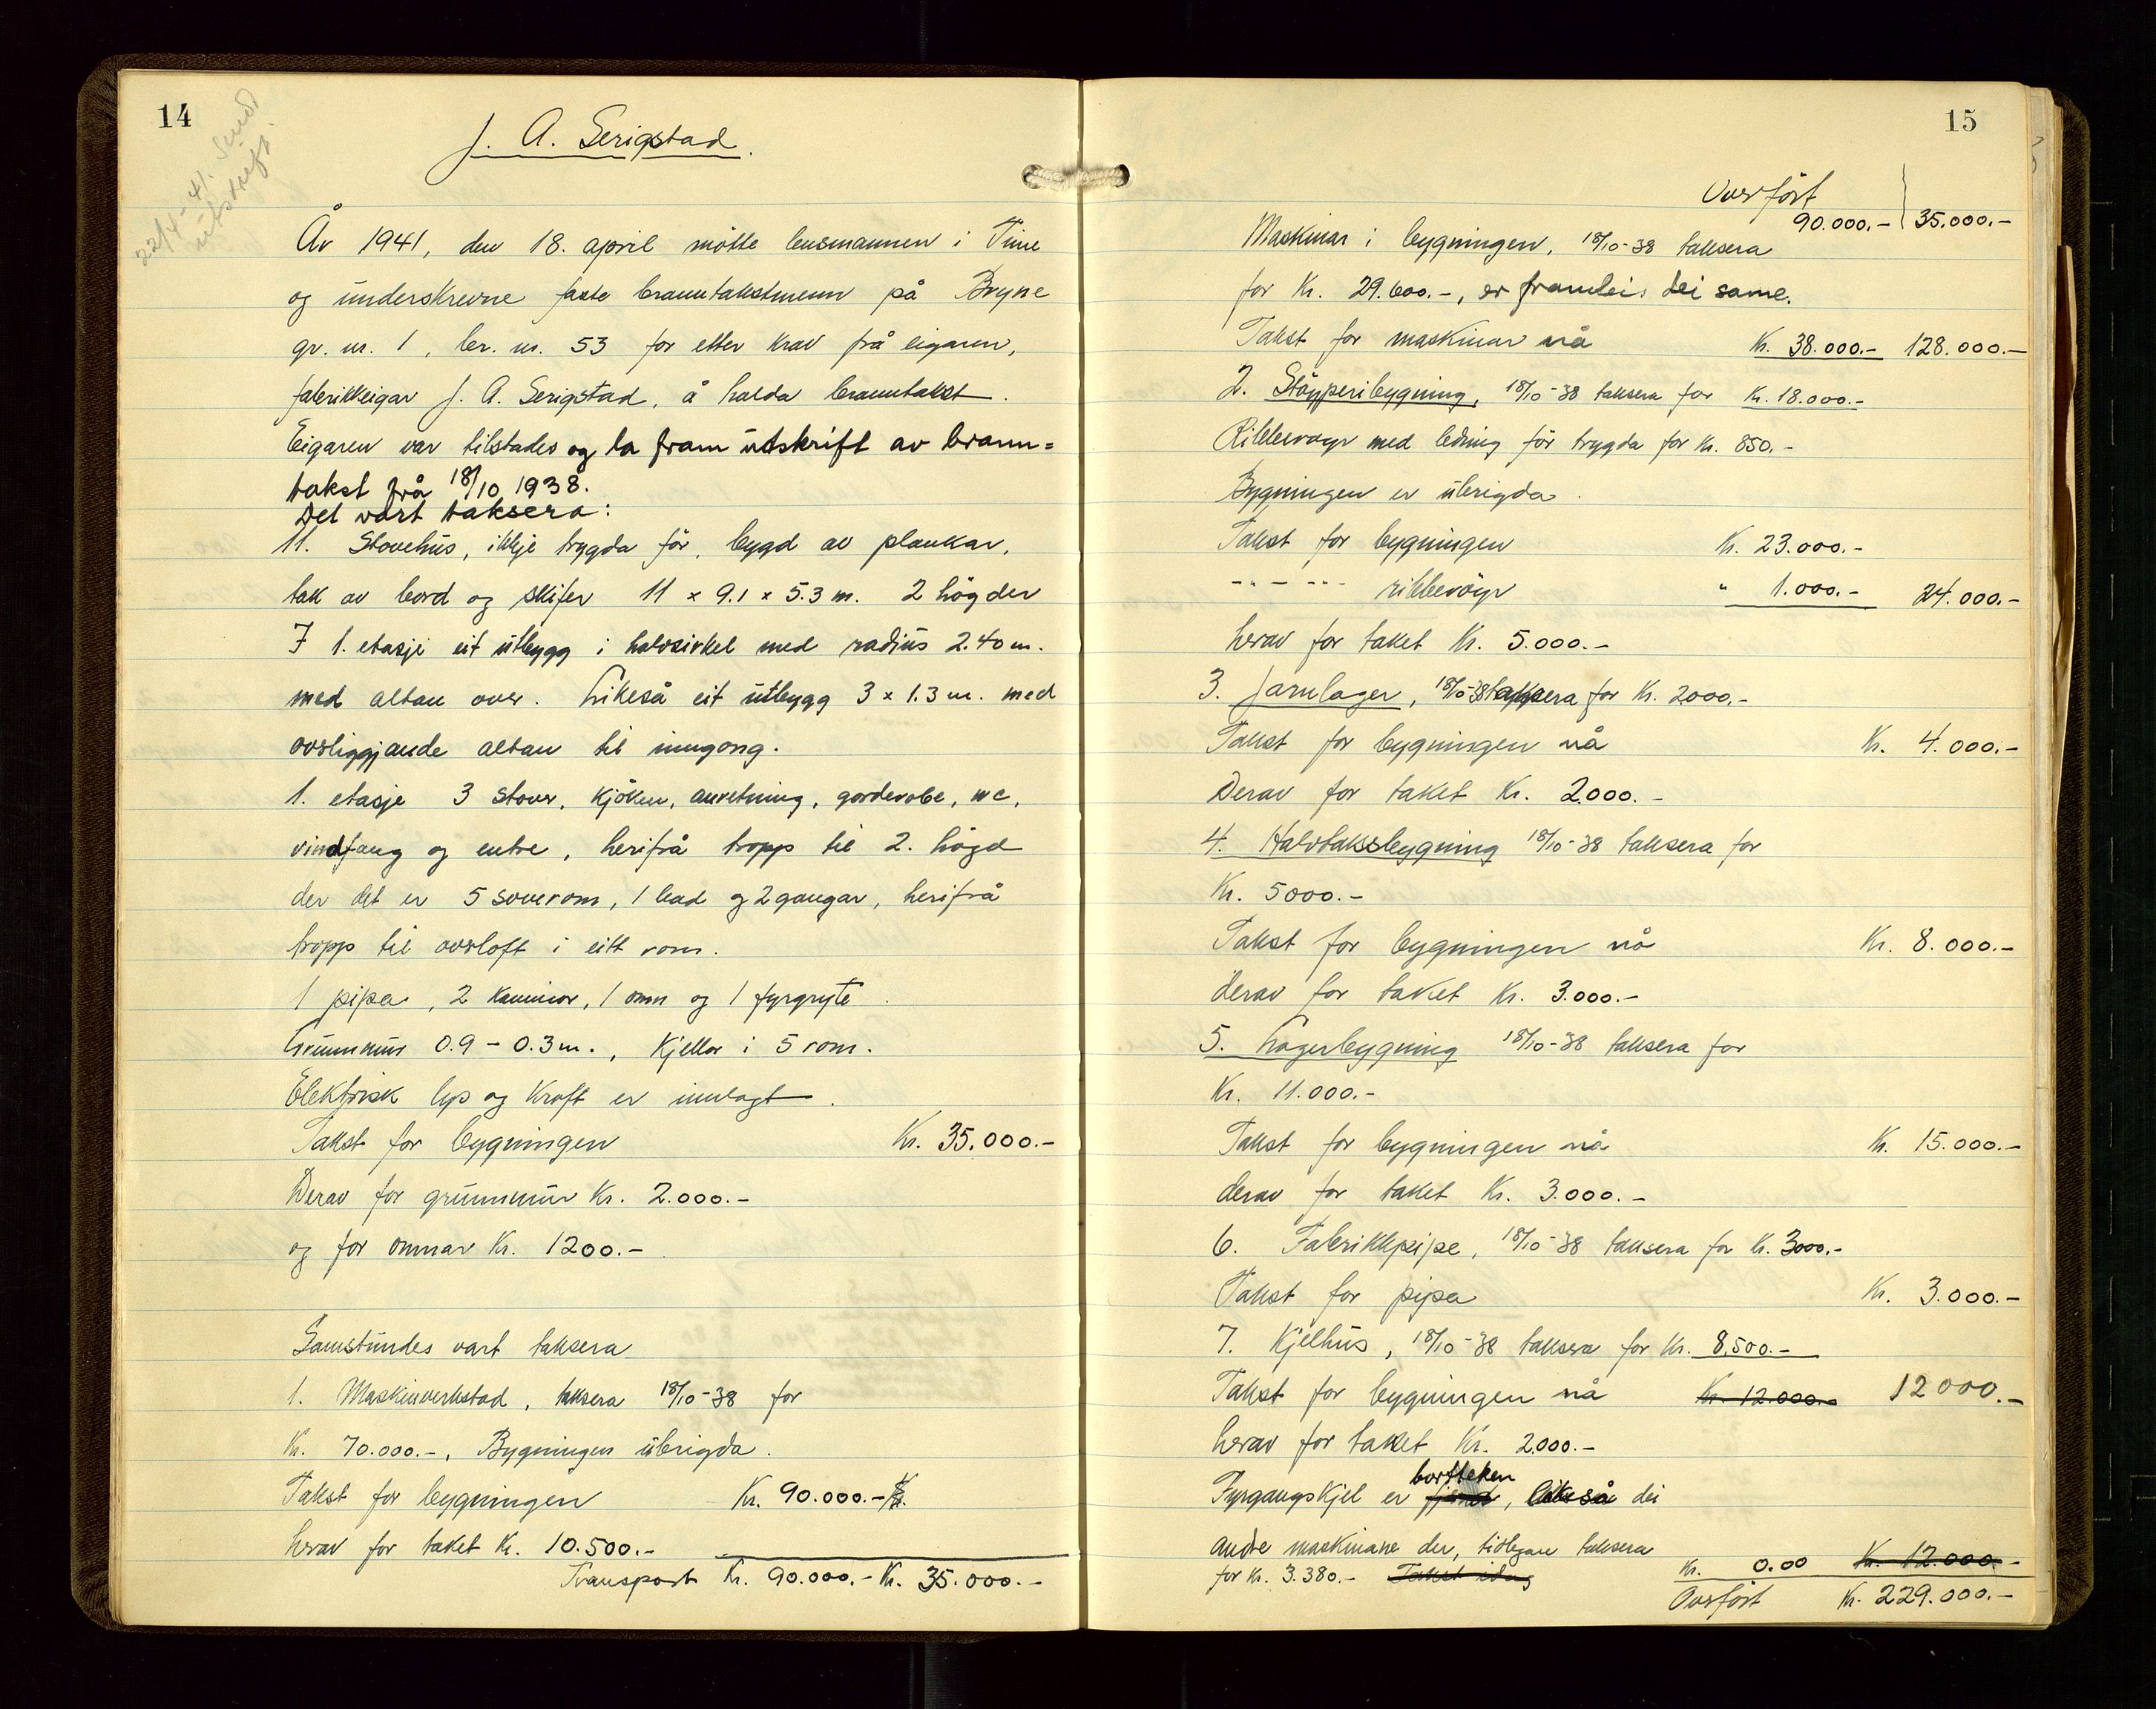 14
22/4-41. Sendt
utskrift.
J. A. Serigstad.
År 1941, den 18. april møtte lensmannen i Time
og underskrevne faste branntakstmenn på Bryne
gr. nr. 1, br. nr. 53 for etter krav frå eigaren,
fabrikkeigar J. A. Serigstad, å halda branntakst.
Eigaren var tilstades og la fram utskrift av brann=
takst frå 18/10 1938.
Det vart taksera:
11. Stovehus, ikkje trygda før, bygd av plankar,
tak av bord og skifer 11 x 9.1 x 5.3 m. 2 høgder
I 1. etasje eit utbygg i halvsirkel med radius 2.40 m.
med altan over. Likeså eit utbygg 3 x 1.3 m. med
ovsliggjande altan til inngong.
1. etasje 3 stover, kjøken, anretning, garderobe, wc,
vindfang og entre, herifrå tropp til 2. høgd
der det er 5 soverom, 1 bad og 2 gangar, herifrå
tropp til ovsloft i eitt rom.
1 pipa, 2 kaminor, 1 omn og 1 fyrgryte.
Grunnmur 0.9 - 0.3 m., kjellar i 5 rom.
Elektrisk lys og kraft er innlagt.
Takst for bygningen Kr. 35.000.-
Derav for grunnmur Kr. 2.000.-
og for omnar Kr. 1200.-
Samstundes vart taksera
1. Maskinverkstad, taksera 18/10-38 for
Kr. 70.000.-, Bygningen ubrigda.
Takst for bygningen Kr. 90.000.-
herav for taket Kr. 10.500.-
Transport Kr. 90.000.- Kr. 35.000.-
15
Overført
90.000.- 35.000.-
Maskinar i bygningen, 18/10-38 taksera
for Kr. 29.600.-, er framleis dei same.
Takst for maskinar nå Kr. 38.000.- 128.000.-
2. Støyperibygning, 18/10-38 taksera for Kr. 18.000.-
Ribberøyr med ledning før trygda for Kr. 850.-
Bygningen er ubrigda.
Takst for bygningen Kr. 23.000.-
-"- -"- ribberøyr " 1.000.- 24.000.-
herav for taket Kr. 5.000.-
3. Jarnlager, 18/10-38 taksera for Kr. 2000.-
Takst for bygningen nå Kr. 4.000.-
Derav for taket Kr. 2.000.-
4. Halvtaksbygning 18/10-38 taksera for
Kr. 5000.-
Takst for bygningen nå Kr. 8.000.-
derav for taket Kr. 3.000.-
5. Lagerbygning 18/10-38 taksera for
Kr. 11.000.-
Takst for bygningen nå Kr. 15.000.-
derav for taket Kr. 3.000.-
6. Fabrikkpipe, 18/10-38 taksera for Kr. 3000.-
Takst for pipa Kr. 3.000.-
7. Kjelhus, 18/10-38 taksera for Kr. 8.500.-
Takst for bygningen nå Kr. 12.000.- 12000.-
herav for taket Kr. 2.000.-
bortteken
Fyrgangskjel er, likeså dei
andre maskinane der, tidlegare taksera
for Kr. 3.380.- Takst idag Kr. 0.00 Kr. 12.000.-
Ovsført Kr. 229.000.-